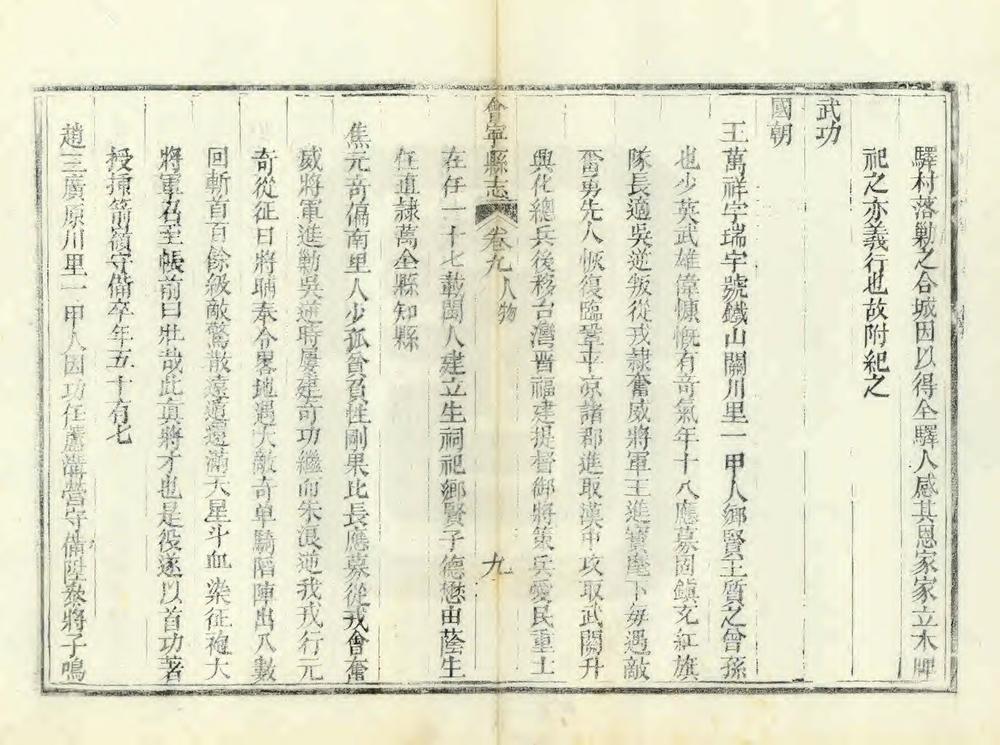 驛村落勦之合城因以得全驛人感其恩家家立木牌
祀之亦義行也故附紀之
武功
國朝
王萬祥字瑞宇號鐵山關川里一甲人鄉賢王質之曾孫
也少英武雄偉慷慨有奇氣年十八應募固鎮充紅旗
隊長適吳逆叛從戎隷奮威將軍王進寶麾下每遇敵
奮勇先人恢復臨鞏平凉諸郡進取漢中攻取武關升
興化總兵後移台灣晋福建提督御將策兵愛民重士
會寧縣志 卷九 人物 九
在任一十七載閩人建立生祠祀鄉賢子德懋由蔭生
任直隷萬全縣知縣
焦元奇偏南里人少孤貧負性剛果比長應募從戎會奮
威將軍進勦吳逆時屢建奇功繼而朱浪逆我戎行元
奇從征日將晡奉令畧地遇大敵奇单騎陷陣出入數
回斬首百餘級敵驚散遠遁還滿天星斗血染征袍大
將軍召至帳前曰壯哉此真將才也是役遂以首功著
授揷箭嶺守備卒年五十有七
趙三廣原川里一甲人因功任蘆溝營守備陞叅將子鳴